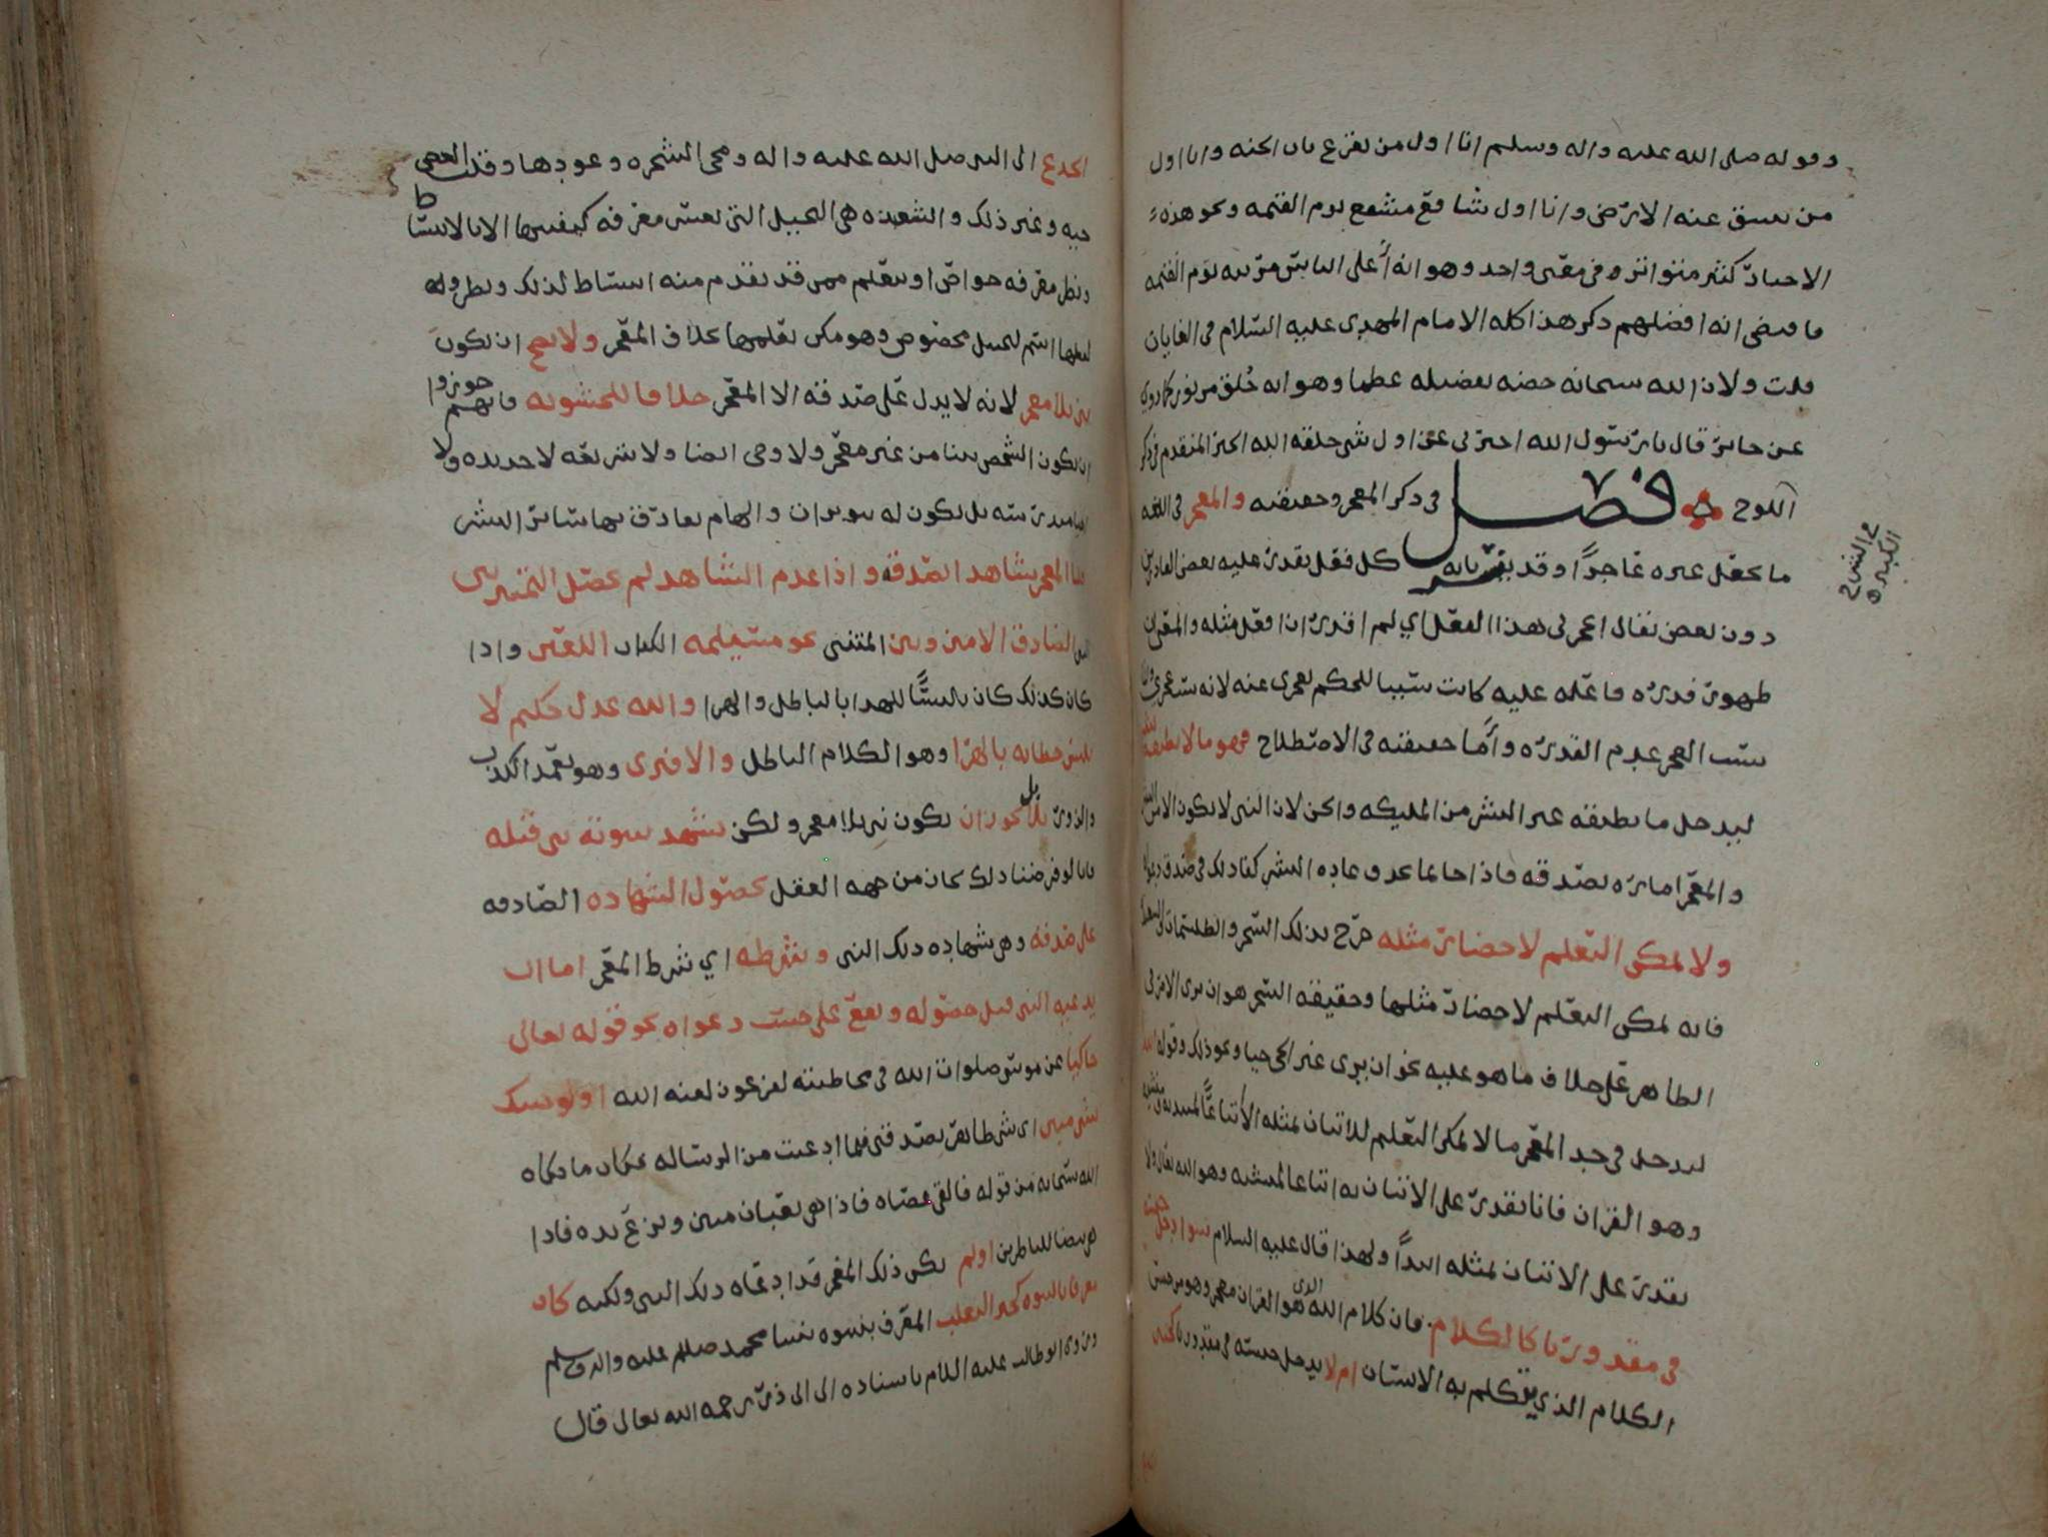 وقوله صلى الله عليه واله وسلم انا اول من يقرع باب الجنه وانا اول
من تنشق عنه الارض وانا اول شافع مشفع يوم القيمه ونحو هذه
الاخبار كثير متواتره في معنى واحد وهو انه أعلى الناس مرتبه يوم القيمه
فاقتضى انه افضلهم ذكر هذا كله الامام المهدي عليه السلام في الغايات
قلت ولان الله سبحانه خصه بفضيله عظما وهو انه خُلق من نور كما روي
عن جابر قال يا رسول الله اخبرني عن اول شي خلقه الله الخبر المتقدم في ذكر
اللوح فصل في ذكر المعجز وحقيقته والمعجز في اللغه
ما يجعل غيره عاجزاً وقد كل فعل يقدر عليه بعض القادرين
دون بعض يقال اعجزني هذا الفعل اي لم اقدر ان افعل مثله والمقران
ظهور قدره فاعله عليه كانت سببا للحكم بعجزي عنه لانه سـ عجزي
سبب العجز عدم القدره وأما حقيقته في الاصطلاح فهو ما لا يطيقه بشر
ليدخل ما يطيقه غير البشر من المليكه والجن لان النبي لا يكون الا من البشر
والمعجز اماره لصدقه فاذا جا بما يخرق عاده البشر كفا ذلك في صدق دعواه
ولا يمكن التعلم لاحضار مثله خرج بذلك السحر والطلسمات والشعبذه
فانه يمكن التعلم لاحضار مثلها وحقيقه السحر هو ان يرى الامر في
الظاهر على خلاف ما هو عليه نحو ان يرى غير الحي حيا ونحو ذلك وقوله
ليدخل في حد المعجز ما لا يمكن التعلم للاتيان بمثله الا اتباعًا لمبتديه
وهو القران فانا نقدر على الاتيان به اتباعا لمنشيه وهو الله تعالى ولا
نقدر على الاتيان بمثله ابداً ولهذا قال عليه السلام سوا دخل جنسه
في مقدورنا كالكلام فان كلام الله الذي هو القران معجز وهو من جنس
الكلام الذي يتكلم به الانسان ام لا يدخل جنسه في مقدورنا كحنين
الجذع الى النبي صلى الله عليه واله ومجي الشجره وعودها وقلب العصى
حيه وغير ذلك والشعبذه هي الحيل التي يعسر معرفه كيفيتها الا بالاستنباط
ونظر معرفه خواص او بتعلم ممن قد تقدم منه استنباط لذلك ونظر وله
لفظها اسم لحيل مخصوص وهو ممكن تعلمها بخلاف المعجز ولا يصح ان يكون
نبي بلا معجز لانه لا يدل على صدقه الا المعجز خلافا للحشويه فانهم جوزوا
ان يكون الشخص نبيا من غير معجز ولا وحي ايضا ولا شريعه لا جديده ولا
احيا مندرسه بل يكون له سويدان والهام يفارق بها ساير البشر
قلنا المعجز شاهد الصدق واذا عدم الشاهد لم يحصل التمييز بين
النبي الصادق الامين وبين المتنبي نحو مسيلمه الكذاب اللعين واذا
كان كذلك كان تلبيسًا للهدا بالباطل والهرا والله عدل حكيم لا
يلبس خطابه بالهرا وهو الكلام الباطل والافترى وهو تعمد الكذب
والزور بلا بل يجوز ان يكون نبي بلا معجز ولكن يشهد بنبوته نبي قبله
فانا لو فرضنا ذلك لجاز من جهه العقل لحصول الشهاده الصادقه
على صدقه وهي شهاده ذلك النبي وشرطه اي شرط المعجز اما ان
يدعيه النبي قبل حصوله ويقع على حسب دعواه نحو قوله تعالى
حاكيا عن موسى صلوات الله في مخاطبته لفرعون لعنه الله اولو جيتك
بشي مبين اي بشي ظاهر يصدقني فيما ادعيت من الرساله فكان ما حكاه
الله سبحانه من قوله فالقى عصاه فاذا هي ثعبان مبين ونزع يده فاذا
هي بيضا للناظرين اولم يكن ذلك المعجز قد ادعاه ذلك النبي ولكنه كان
معرفا بالنبوه كخبر الثعلب المعرف بنبوه نبينا محمد صلى عليه واله وسلم
وروى ابو طالب عليه السلام باسناده الى ابي ذر رحمه الله تعالى قال